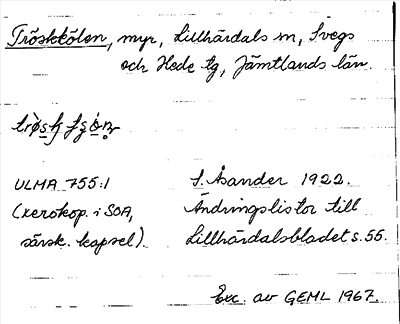 Tröskkölen, myr, Lillhärdals sn, Svegs
och Hede tg, Jämtlands län.
ULMA 755:1
(xerokop. i SOA,
särsk. kapsel).
S. Åsander 1922.
Ändringslistor till
Lillhärdalsbladet s. 55.
Exc. av GEML 1967.